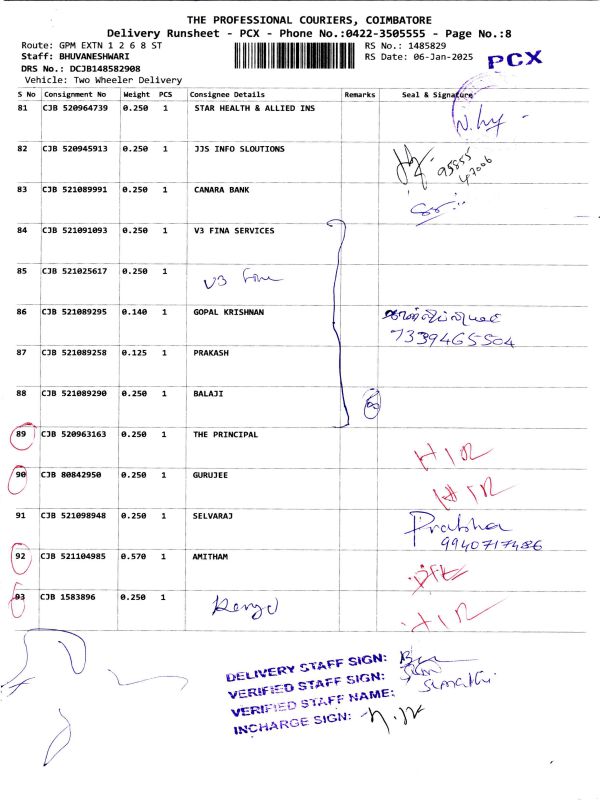 THE PROFESSIONAL COURIERS, COIMBATORE
Delivery Runsheet - PCX - Phone No.:0422-3505555 - Page No.:8
Route: GPM EXTN 1 2 6 8 ST
RS No.: 1485829
Staff: BHUVANESHWARI
RS Date: 06-Jan-2025
PCX
DRS No.: DCJB148582908
Vehicle: Two Wheeler Delivery
S No Consignment No Weight PCS Consignee Details Remarks Seal & Signature
81 CJB 520964739 0.250 1 STAR HEALTH & ALLIED INS
82 CJB 520945913 0.250 1 JJS INFO SLOUTIONS 95855
47006
83 CJB 521089991 0.250 1 CANARA BANK
84 CJB 521091093 0.250 1 V3 FINA SERVICES
85 CJB 521025617 0.250 1 V3 Fine
86 CJB 521089295 0.140 1 GOPAL KRISHNAN
7339465504
87 CJB 521089258 0.125 1 PRAKASH
88 CJB 521089290 0.250 1 BALAJI
89 CJB 520963163 0.250 1 THE PRINCIPAL HIR
90 CJB 80842950 0.250 1 GURUJEE HIR
91 CJB 521098948 0.250 1 SELVARAJ Prabha
9940717486
92 CJB 521104985 0.570 1 AMITHAM
93 CJB 1583896 0.250 1 HIR
DELIVERY STAFF SIGN:
VERIFIED STAFF SIGN:
VERIFIED STAFF NAME: Sumathi
INCHARGE SIGN: